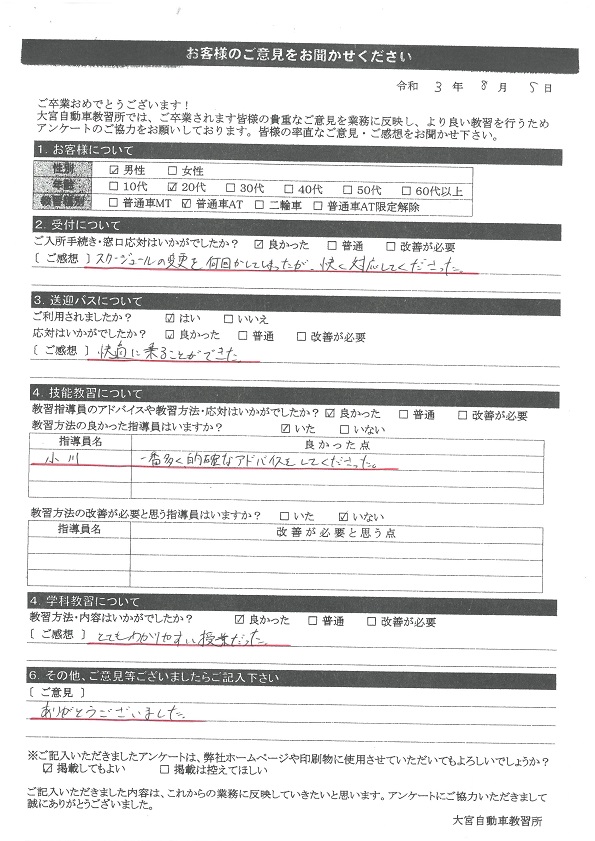 お客様のご意見をお聞かせください
令和 3 年 8 月 5 日
ご卒業おめでとうございます！
大宮自動車教習所では、ご卒業されます皆様の貴重なご意見を業務に反映し、より良い教習を行うため
アンケートのご協力をお願いしております。皆様の率直なご意見・ご感想をお聞かせ下さい。
1. お客様について
性別 ☑ 男性 □ 女性
年齢 □ 10代 ☑ 20代 □ 30代 □ 40代 □ 50代 □ 60代以上
教習種別 □ 普通車MT ☑ 普通車AT □ 二輪車 □ 普通車AT限定解除
2. 受付について
ご入所手続き・窓口応対はいかがでしたか？ ☑ 良かった □ 普通 □ 改善が必要
［ ご感想 ］ スケージュールの変更を何回かしてしまったが、快く対応してくださった。
3. 送迎バスについて
ご利用されましたか？ ☑ はい □ いいえ
応対はいかがでしたか？ ☑ 良かった □ 普通 □ 改善が必要
［ ご感想 ］ 快適に乗ることができた
4. 技能教習について
教習指導員のアドバイスや教習方法・応対はいかがでしたか？ ☑ 良かった □ 普通 □ 改善が必要
教習方法の良かった指導員はいますか？ ☑ いた □ いない
指導員名 良かった点
小川 一番多く的確なアドバイスをしてくださった。
教習方法の改善が必要と思う指導員はいますか？ □ いた ☑ いない
指導員名 改善が必要と思う点
4. 学科教習について
教習方法・内容はいかがでしたか？ ☑ 良かった □ 普通 □ 改善が必要
［ ご感想 ］ とてもわかりやすい授業だった
6. その他、ご意見等ございましたらご記入下さい
［ ご意見 ］
ありがとうございました
※ご記入いただきましたアンケートは、弊社ホームページや印刷物に使用させていただいてもよろしいでしょうか？
☑ 掲載してもよい □ 掲載は控えてほしい
ご記入いただきました内容は、これからの業務に反映していきたいと思います。アンケートにご協力いただきまして
誠にありがとうございました。
大宮自動車教習所